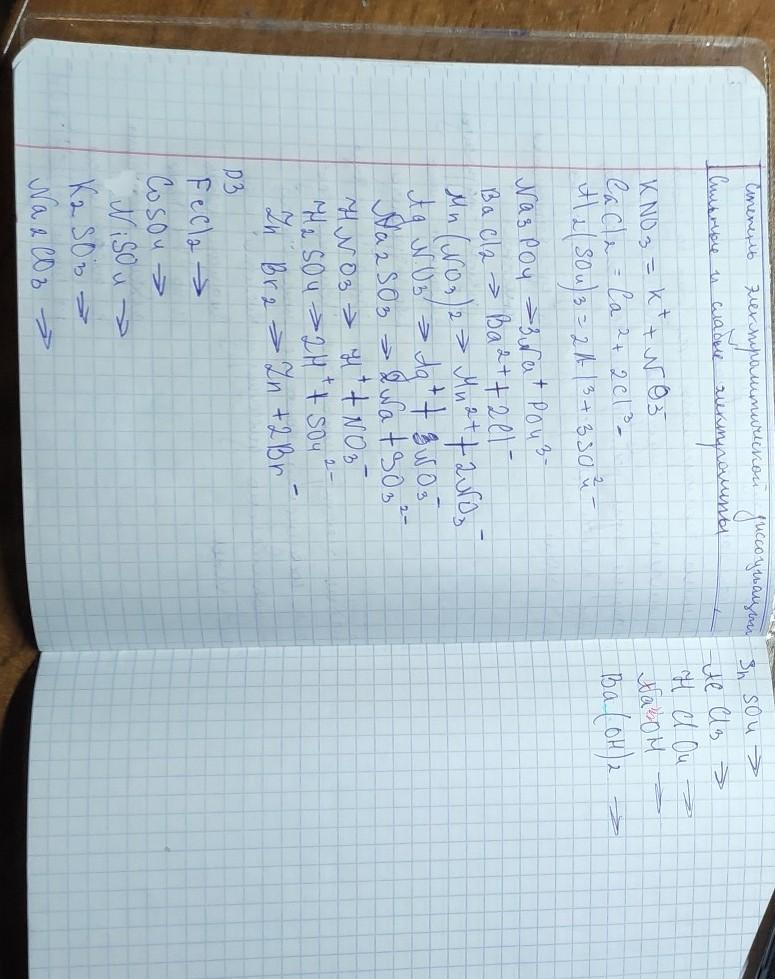 Степень электролитической диссоциации
Сильные и слабые электролиты
KNO3 = K⁺ + NO3⁻
CaCl2 = Ca²⁺ + 2Cl³⁻
Al2(SO4)3 = 2Al³⁺ + 3SO4²⁻
Na3PO4 → 3Na⁺ PO4³⁻
BaCl2 → Ba²⁺ + 2Cl⁻
Mn(NO3)2 → Mn²⁺ + 2NO3⁻
AgNO3 → Ag⁺ + NO3⁻
Na2SO3 → 2Na + SO3²⁻
HNO3 → H⁺ + NO3⁻
H2SO4 → 2H⁺ + SO4²⁻
ZnBr2 → Zn + 2Br⁻
DЗ
FeCl2 →
CoSO4 →
NiSO4 →
K2SO3 →
Na2CO3 →
SnSO4 →
AlCl3 →
HClO4 →
NaOH →
Ba(OH)2 →